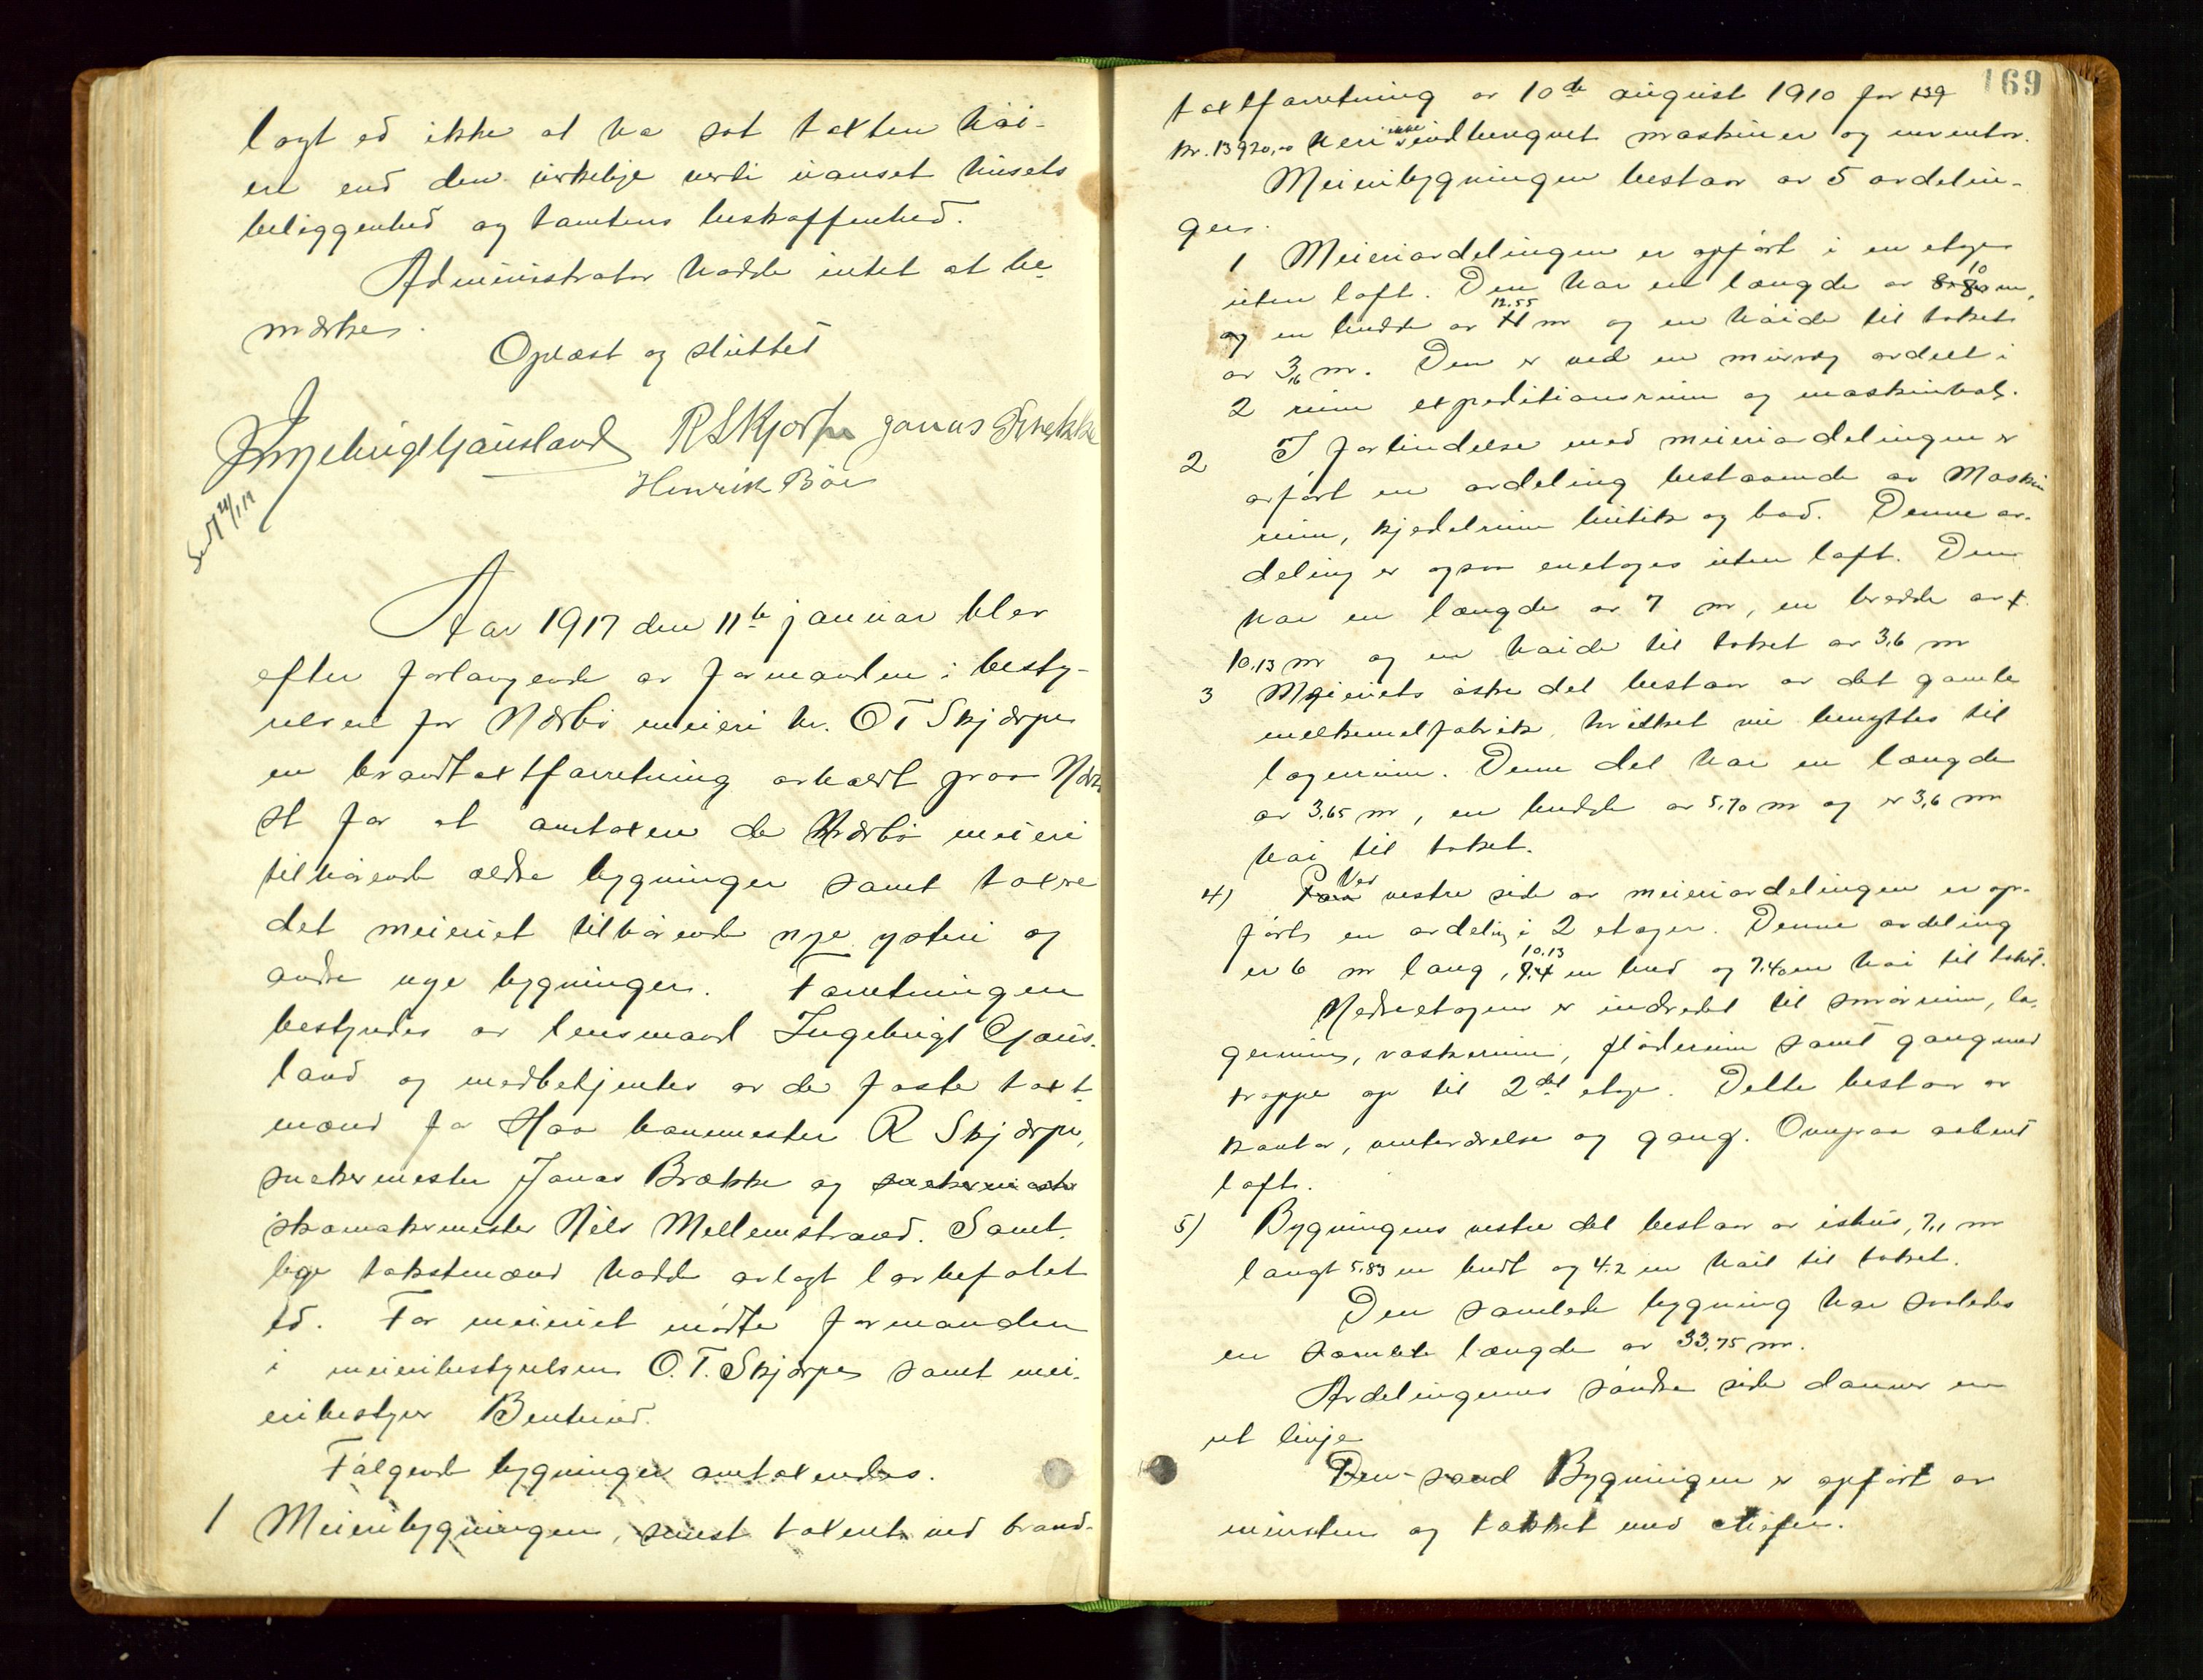 lagt ed ikke at ha sat taxten höi-
ere end den virkelige verdi uanset husets
beliggenhed og tomtens beskaffenhed.
Administrator hadde intet at be-
mærke.
Oplæst og sluttet
Ingebrigt Gausland RSkjærpe Jonas Brække
Henrik Böe
Aar 1917 den 11te januar blev
efter forlangende av formanden i besty-
relsen for Nærbö meieri hr. OT Skjærpe
en brandtaxtforretning avholdt paa Nærbö
st for at omtaxere de Nærbö meieri
tilhörende ældre bygninger samt taxere
det meieriet tilhörende nye ysteri og
andre nye bygninger. Forretningen
bestyredes av lensmand Ingebrigt Gaus-
land og medbetjentes av de faste taxt-
mænd for Haa banemester R Skjærpe,
snekermester Jonas Brække og snekermester
skomakermester Nils Mellemstrand. Samt-
lige takstmænd hadde avlagt lovbefalet
ed. For meieriet mödte formanden
i meieribestyrelsen O.T. Skjærpe samt mei-
eribestyrer
Fölgende bygninger omtaxertes.
1 Meieribygningen, sidst taxert ved brand-
169
taxtforretning av 10de august 1910 for 139
kr. 13920,00 heri ikke indberegnet maskiner og inventar.
Meieribygningen bestaar av 5 avdelin-
ger.
1 Meieriavdelingen er opfört i en etage
uten loft. Den har en længde av 8.80 10 m,
og en bredde av 11 12.55 m og en höide til taket
av 3,6 m. Den er ved en murvæg avdelt i
2 rum expeditionsrum og maskinhal.
2 I forbindelse med meieriavdelingen er
opfört en avdeling bestaaende av Maskin
rum, kjedelrum butik og bad. Denne av-
deling er ogsaa enetages uten loft. Den
har en længde av 7 m, en bredde av
10.13 m og en höide til taket av 3,6 m
3 Meieriets östre del bestaar av det gamle
melkemelfabrik, hvilket nu benyttes til
lagerrum. Denne del har en længde
av 3,65 m, en bredde av 5,70 m og er 3,6 m
höi til taket.
4) Paa Ved vestre side av meieriavdelingen er op-
fört en avdeling i 2 etager. Denne avdeling
er 6 m lang, 7.4 10.13 m bred og 7.40 m höi til taket.
Nedreetagen er indredet til smörrum, la-
gerrum, vaskerum, flöderum samt gang med
trappe op til 2den etage. Dette bestaar av
kontor, venteværelse og gang. Ovenpaa aabent
loft.
5) Bygningens vestre del bestaar av ishus, 7,1 m
langt 5.83 m bredt og 4.2 m höit til taket.
Den samlede bygning har saaledes
en samlede længde av 33,75 m.
Avdelingernes söndre side danner en
ret linje
Den saad Bygningen er opfört av
mursten og tækket med skifer.